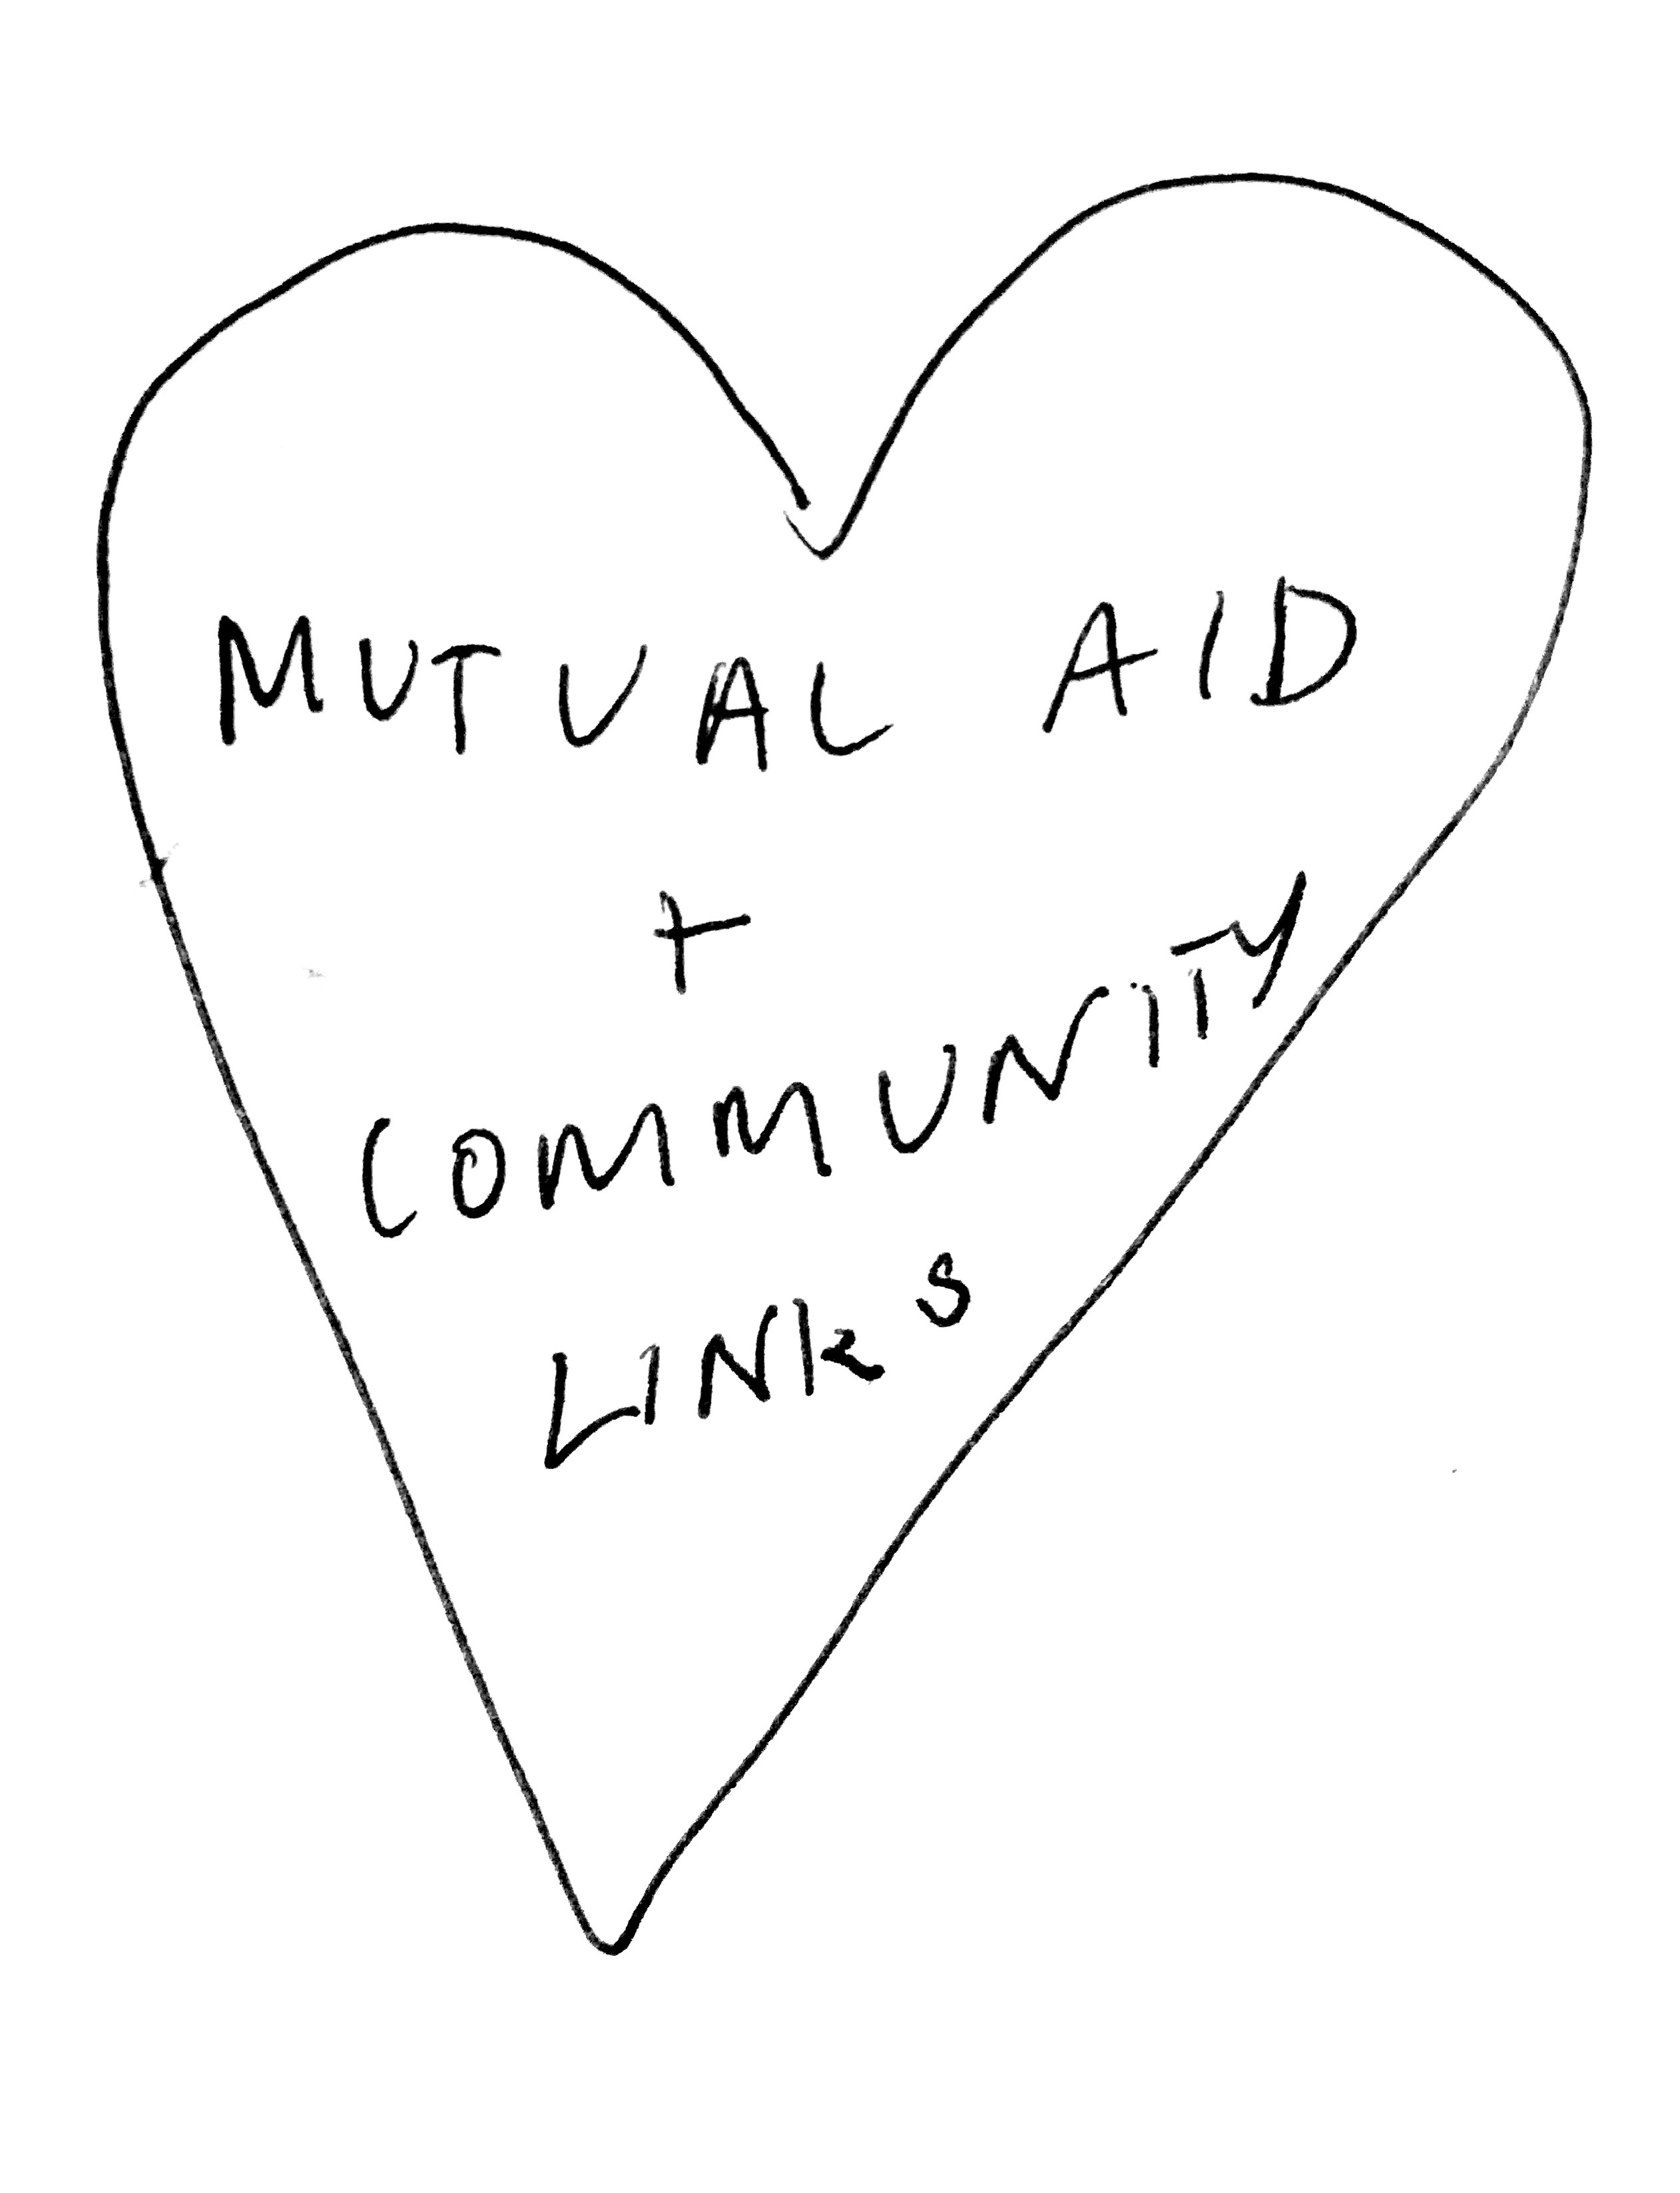 MUTUAL AID
+
COMMUNITY
LINKS